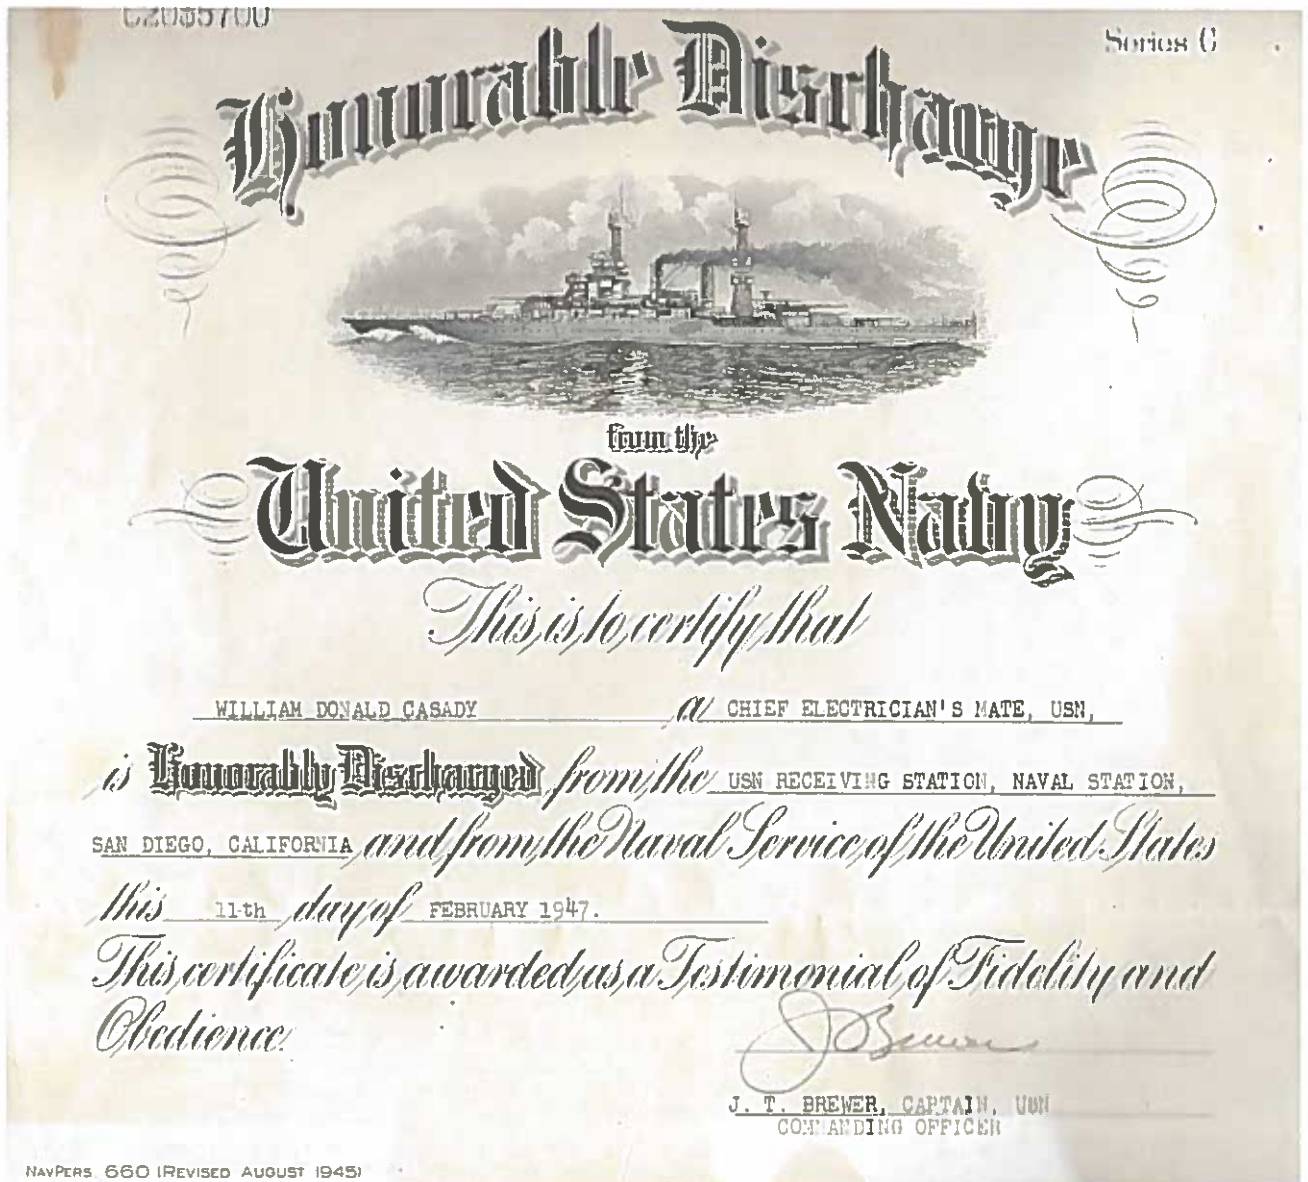 C2035700
Series C
Honorable Discharge
from the
United States Navy
This is to certify that
WILLIAM DONALD CASADY a CHIEF ELECTRICIAN'S MATE, USN,
is Honorably Discharged from the USN RECEIVING STATION, NAVAL STATION,
SAN DIEGO, CALIFORNIA and from the Naval Service of the United States
this 11th day of FEBRUARY 1947.
This certificate is awarded as a Testimonial of Fidelity and
Obedience.
J. T. Brewer
J. T. BREWER, CAPTAIN, USN
COMMANDING OFFICER
NAVPERS 660 (REVISED AUGUST 1945)